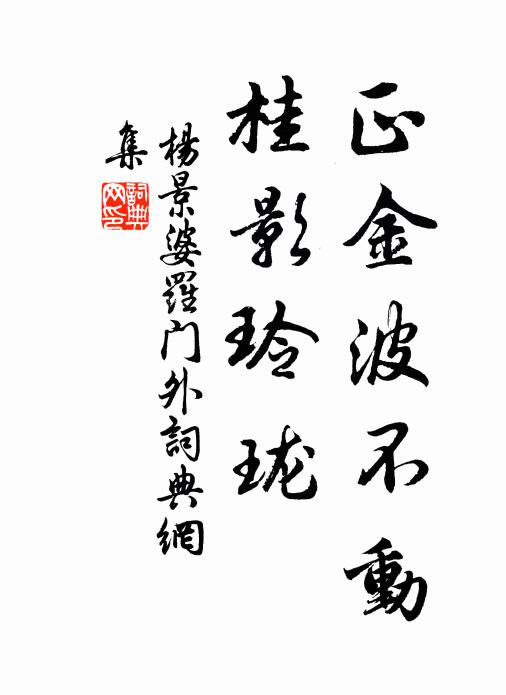 正金波不動
桂影玲瓏
楊景婆羅門外詞典網
集
詞典
网印